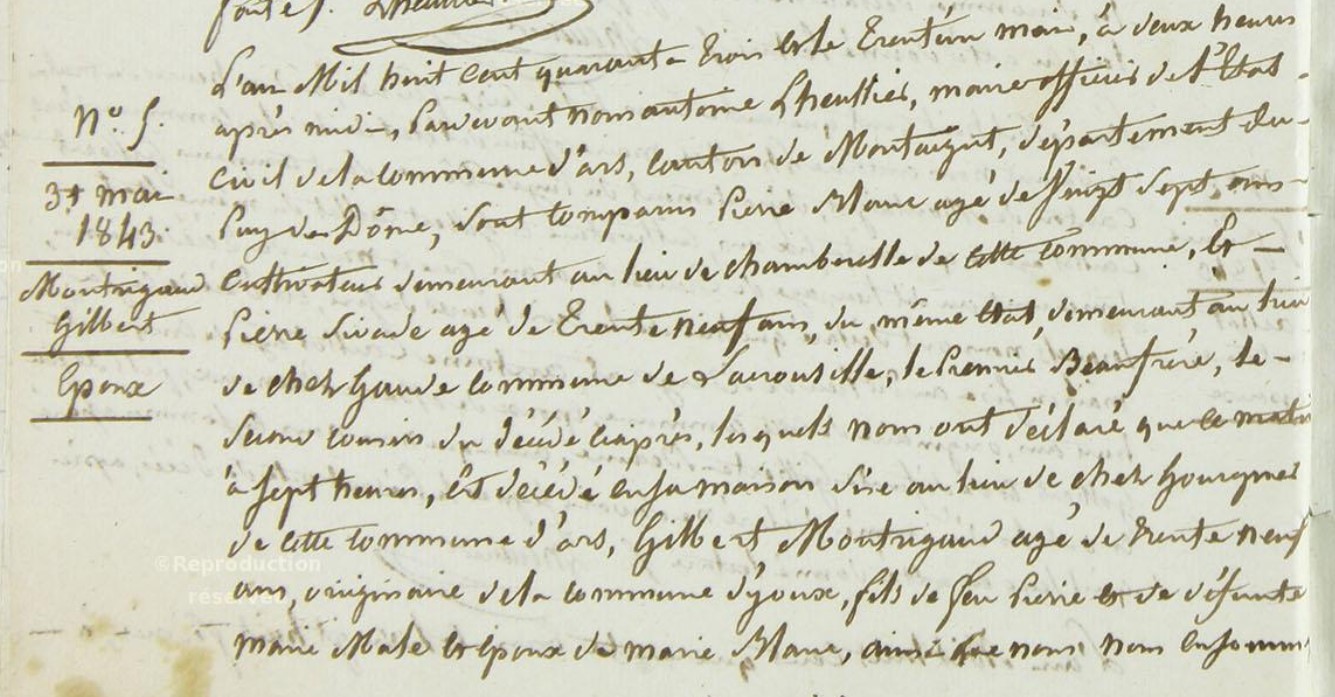 L'an Mil huit cent quarante trois et le trente un mai, à deux heures
après midi, Pardevant nous antoine Lheullier, maire officier de l'Etat
civil de la commune d'ars, canton de Montaigut, département du
Puy de Dôme, sont comparus Pierre Mane agé de vingt sept ans
cultivateur demeurant au lieu de chamberelle de cette commune, Et
Pierre Sivade agé de trente neuf ans, du même état, demeurant au lieu
de chez Gaude commune de Lacrouzille, le Premier Beaufrère, le
second cousin du décédé ciaprès, lesquels nous ont déclaré que ce matin
à sept heures, Est décédé en sa maison sise au lieu de chez
de cette commune d'ars, Gilbert Montrigaud agé de trente neuf
ans, originaire de la commune d'youx, fils de feu Pierre et de défunte
marie Male et époux de marie Mane, ainsi que nous nous en somm
N.° 5.
31 mai
1843.
Montrigaud
Gilbert
Epoux
©Reproduction
réservée